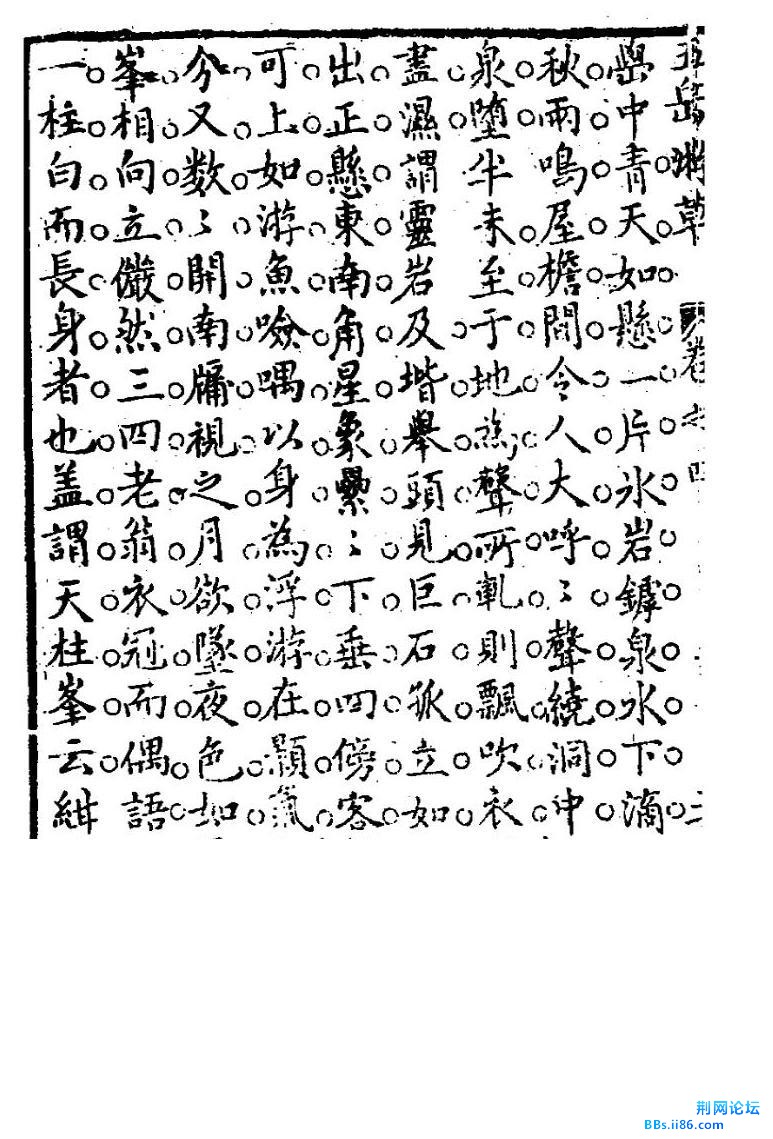 五岳游草 卷
中青天如懸一片氷岩罅泉水下滴
秋雨鳴屋檐間令人大呼〻聲繞洞中
泉墮半未至于地為聲所軋則飄吹衣
盡濕謂靈岩及堦舉頭見巨石孤立如
出正懸東南角星象纍〻下垂四傍客
可上如游魚噞喁以身為浮游在顥氣
分又数〻開南牖視之月欲墜夜色如
峯相向立儼然三四老翁衣冠而偶語
一柱白而長身者也盖謂天柱峯云紺
荆网论坛
BBs.ii86.com